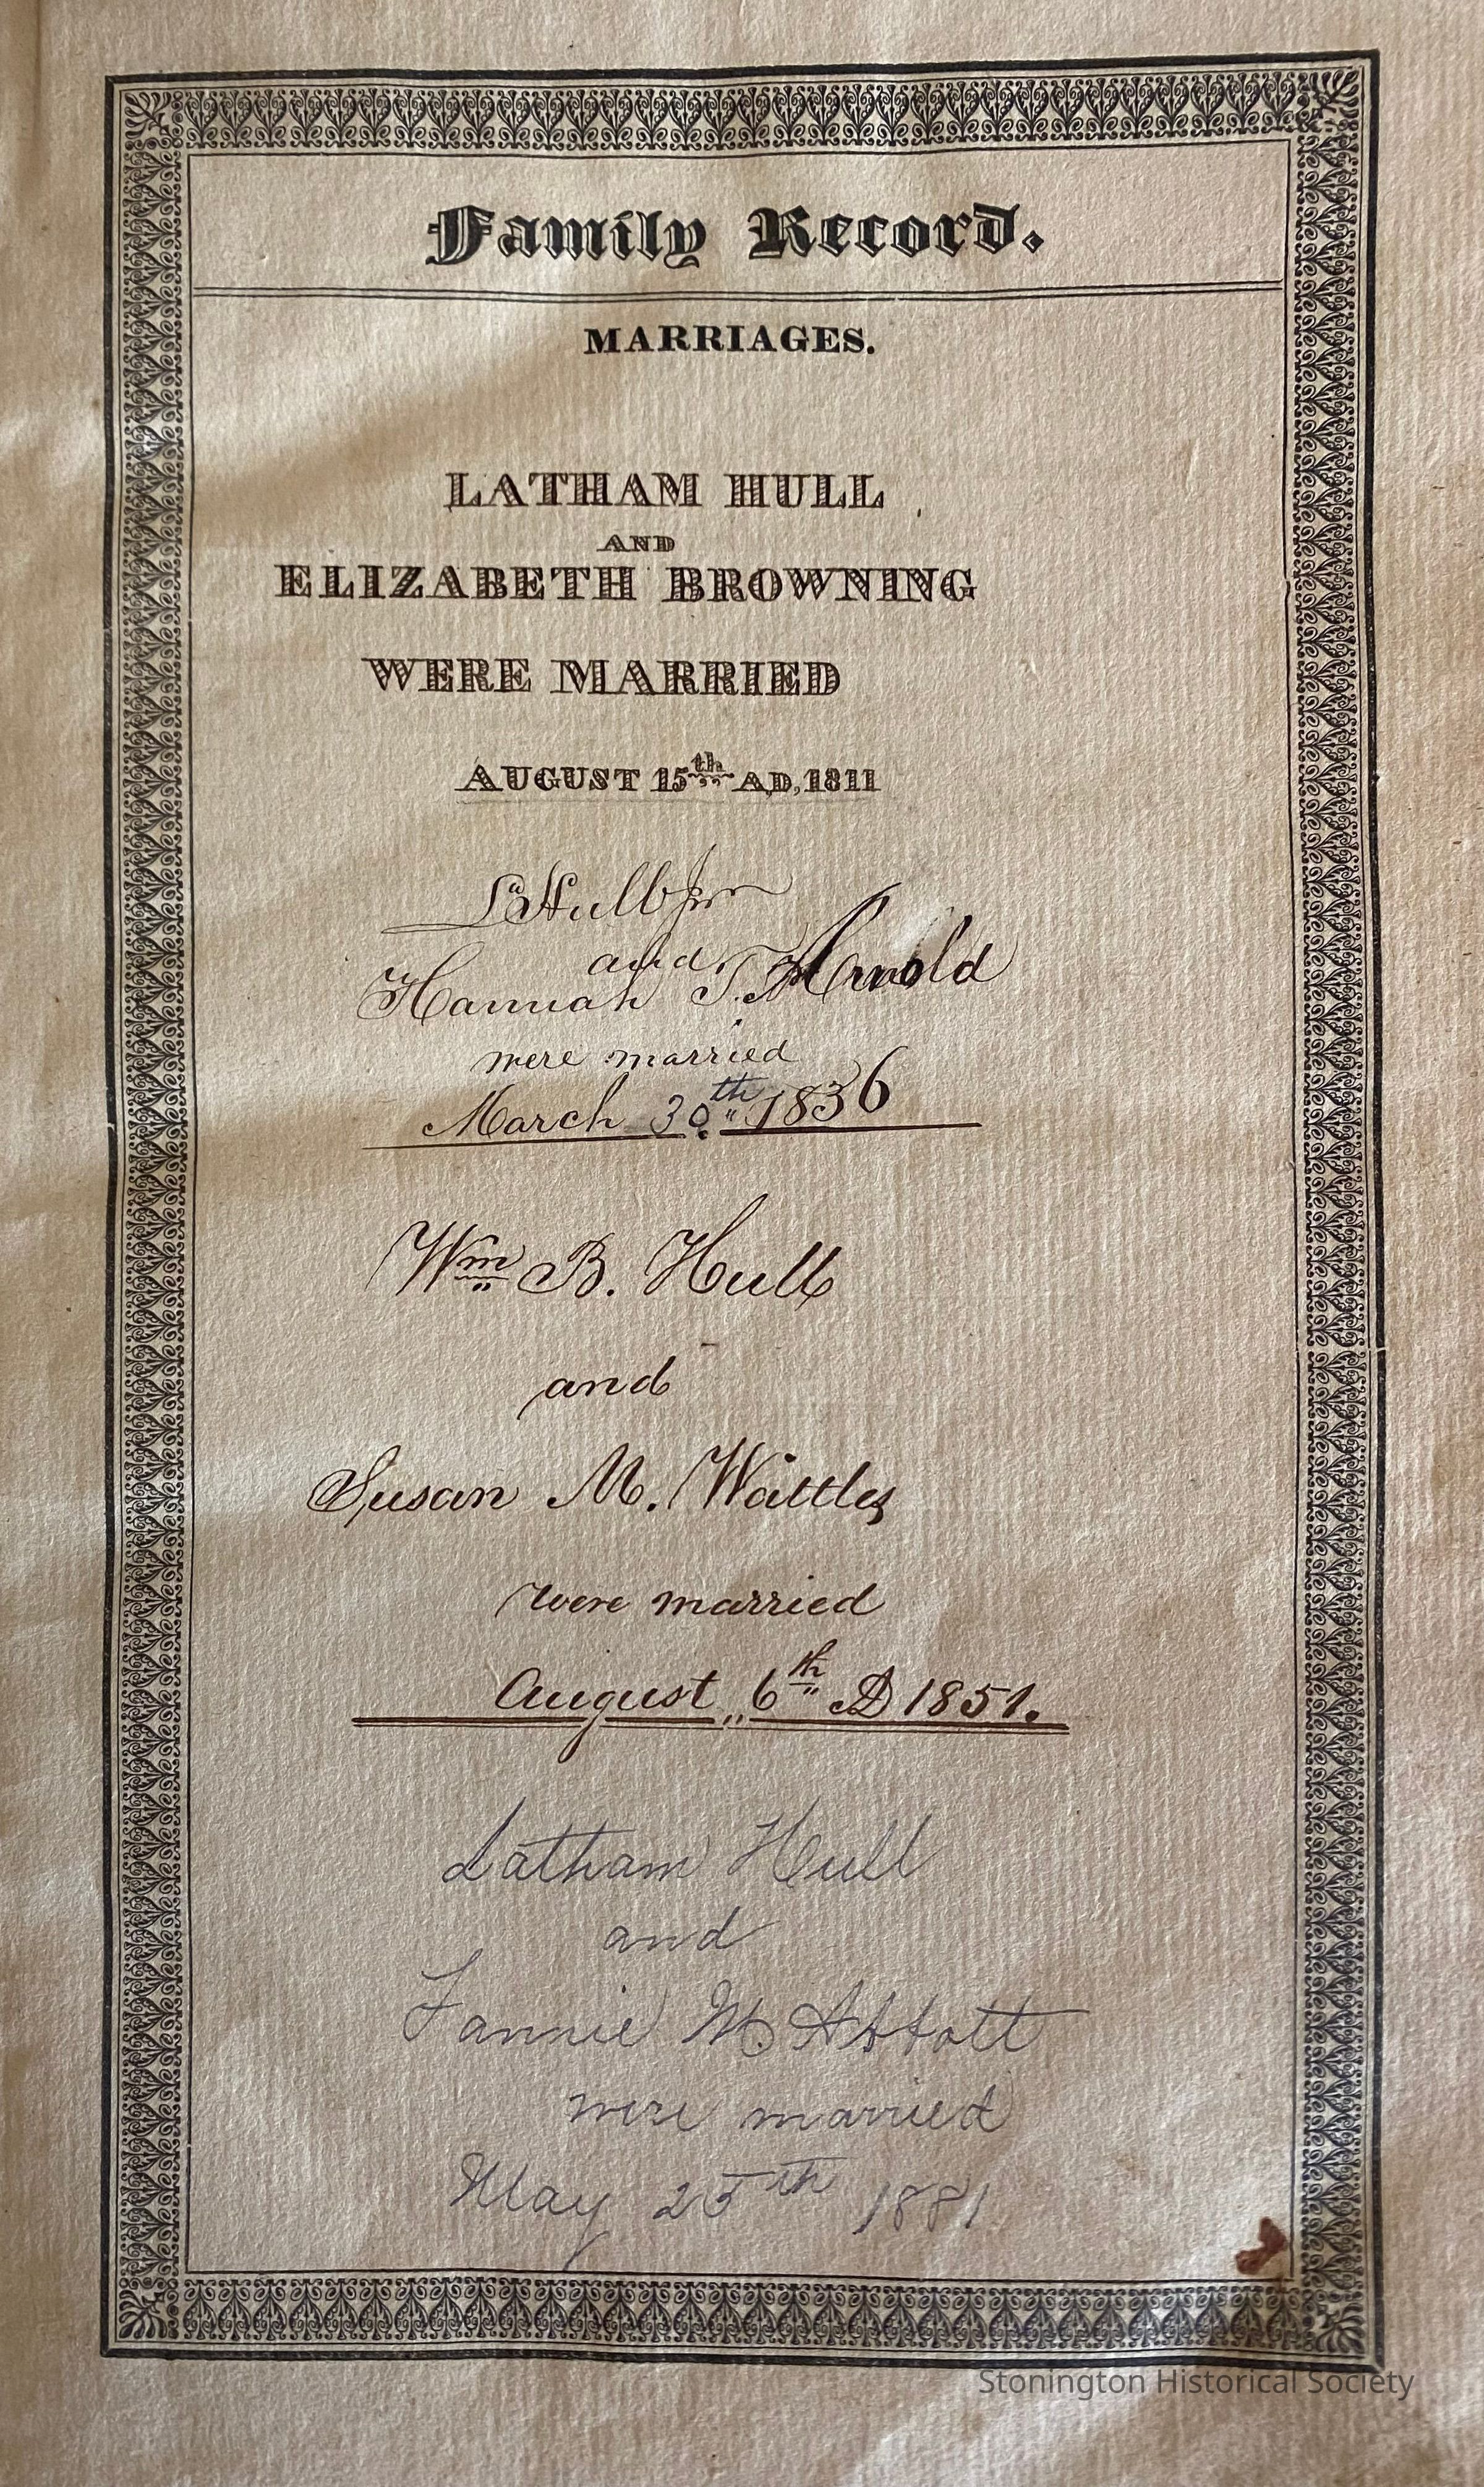 Family Record.
MARRIAGES.
LATHAM HULL
AND
ELIZABETH BROWNING
WERE MARRIED
AUGUST 15th AD, 1811
L. Hull Jr
and
Hannah T. Arnold
were married
March 30th 1836
Wm B. Hull
and
Susan M. Wattles
were married
August 6th AD 1851.
Latham Hull
and
Fannie M. Abbott
were married
May 25th 1881
Stonington Historical Society